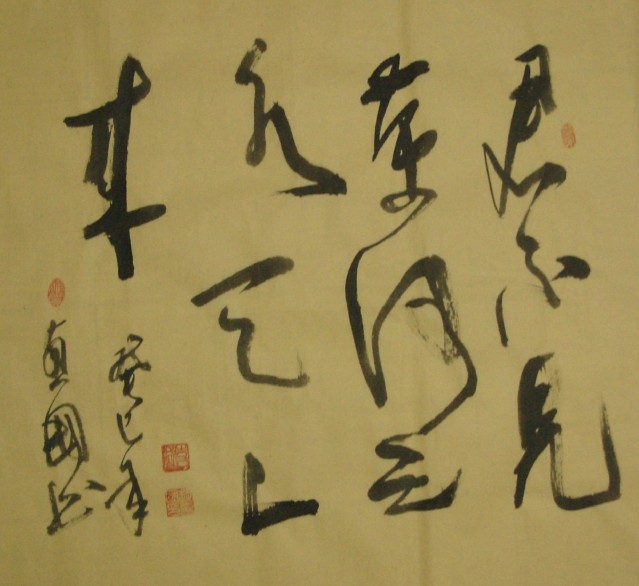 君不见
黄河之
水天上
来
癸巳年
真国书